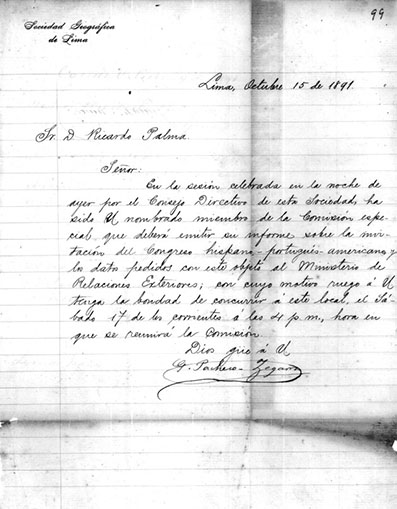 99
Sociedad Geográfica
de Lima
Lima, Octubre 15 de 1891.
Sr. D. Ricardo Palma.
Señor:
En la sesión celebrada en la noche de
ayer por el Consejo Directivo de esta Sociedad, ha
sido U nombrado miembro de la Comisión espe-
cial que deberá emitir su informe sobre la invi-
tación del Congreso hispano-portugués-americano, y
los datos pedidos con este objeto al Ministerio de
Relaciones Exteriores; con cuyo motivo ruego á U
tenga la bondad de concurrir á este local, el Sá-
bado 17 de los corrientes á las 4 p.m., hora en
que se reunirá la Comisión.
Dios gue á U
G. Pacheco-Zegarra